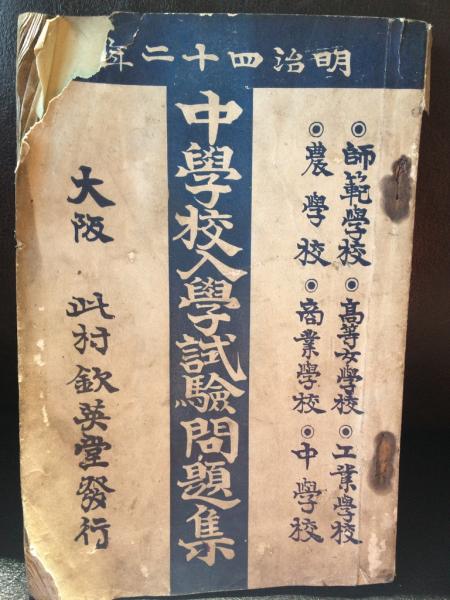 明治四十二年
◉師範學校◉高等女學校◉工業學校
◉農學校◉商業學校◉中學校
中學校入學試驗問題集
大阪 此村欽英堂發行